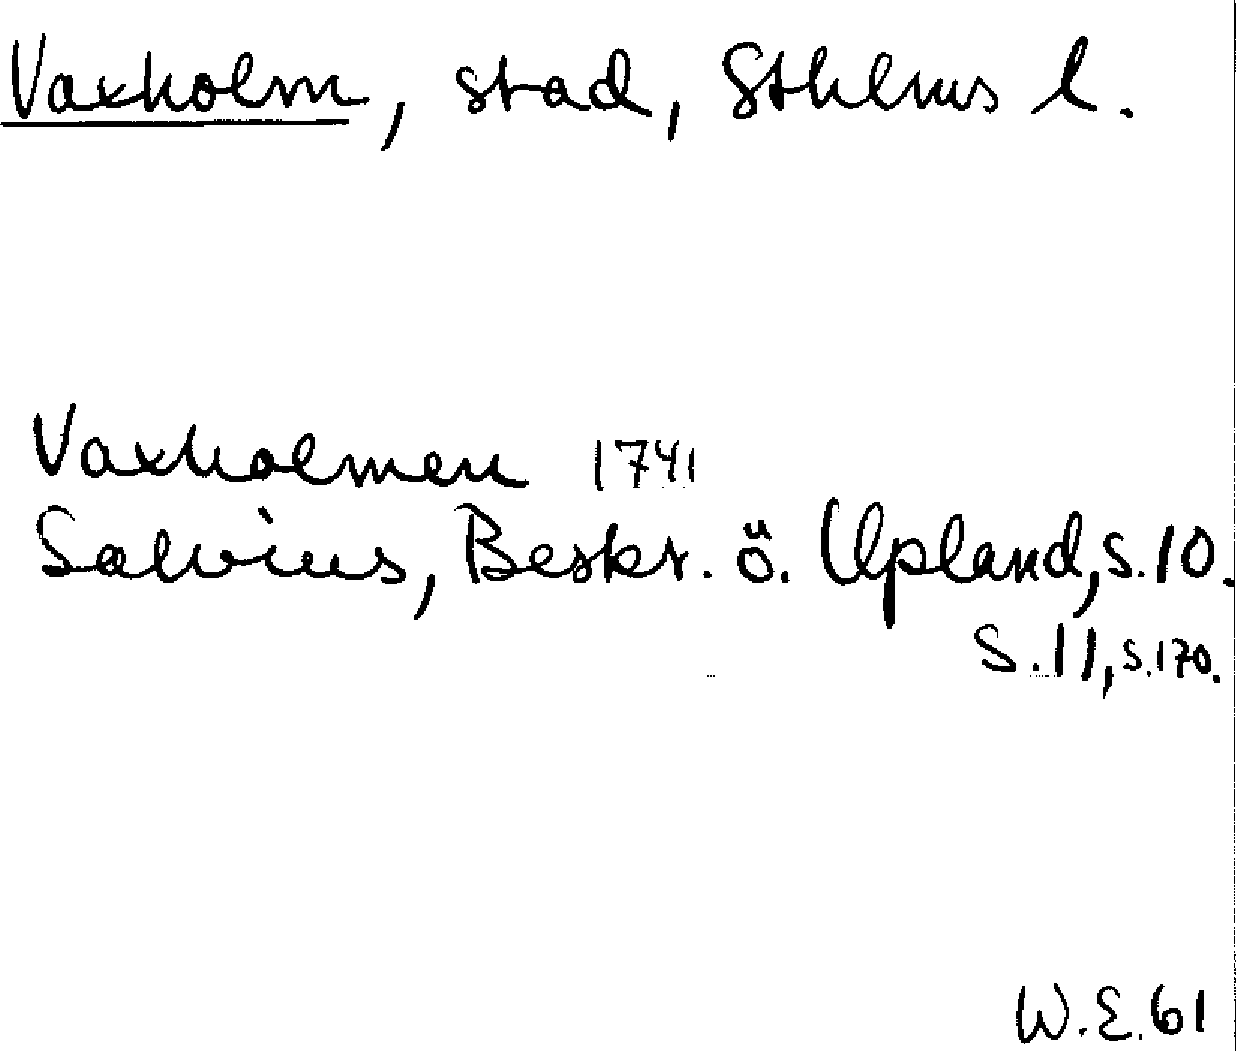 Vaxholm, stad, Sthlms l.
Vaxholmen 1741
Salvius, Beskr. ö. Upland, s. 10.
S. 11, s. 170.
W. E. 61